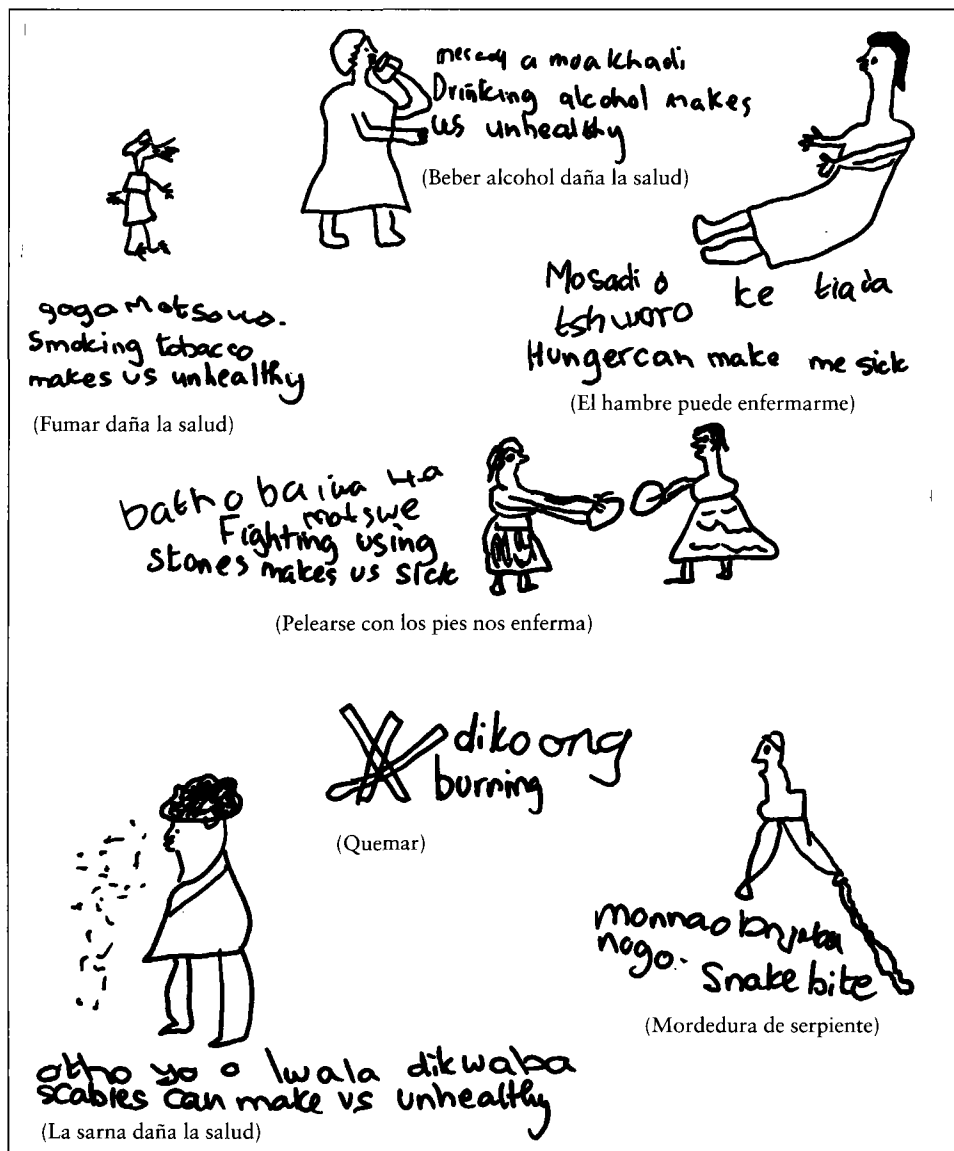 a moa khadi
Drinking alcohol makes
us unhealthy
(Beber alcohol daña la salud)
goga Motsoko.
Smoking tobacco
makes us unhealthy
(Fumar daña la salud)
Mosadi o
tshwaro ke tlada
Hunger can make me sick
(El hambre puede enfermarme)
batho ba lwa ka
motswe
Fighting using
stones makes us sick
(Pelearse con los pies nos enferma)
dikoong
burning
(Quemar)
monna o
nogo.
Snake bite
(Mordedura de serpiente)
otho yo o lwala dikwaba
scabies can make us unhealthy
(La sarna daña la salud)